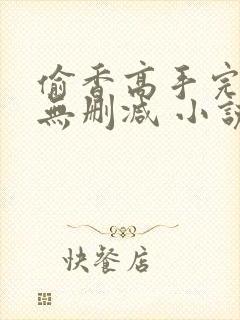 偷香高手完
無刪減 小說
快餐店